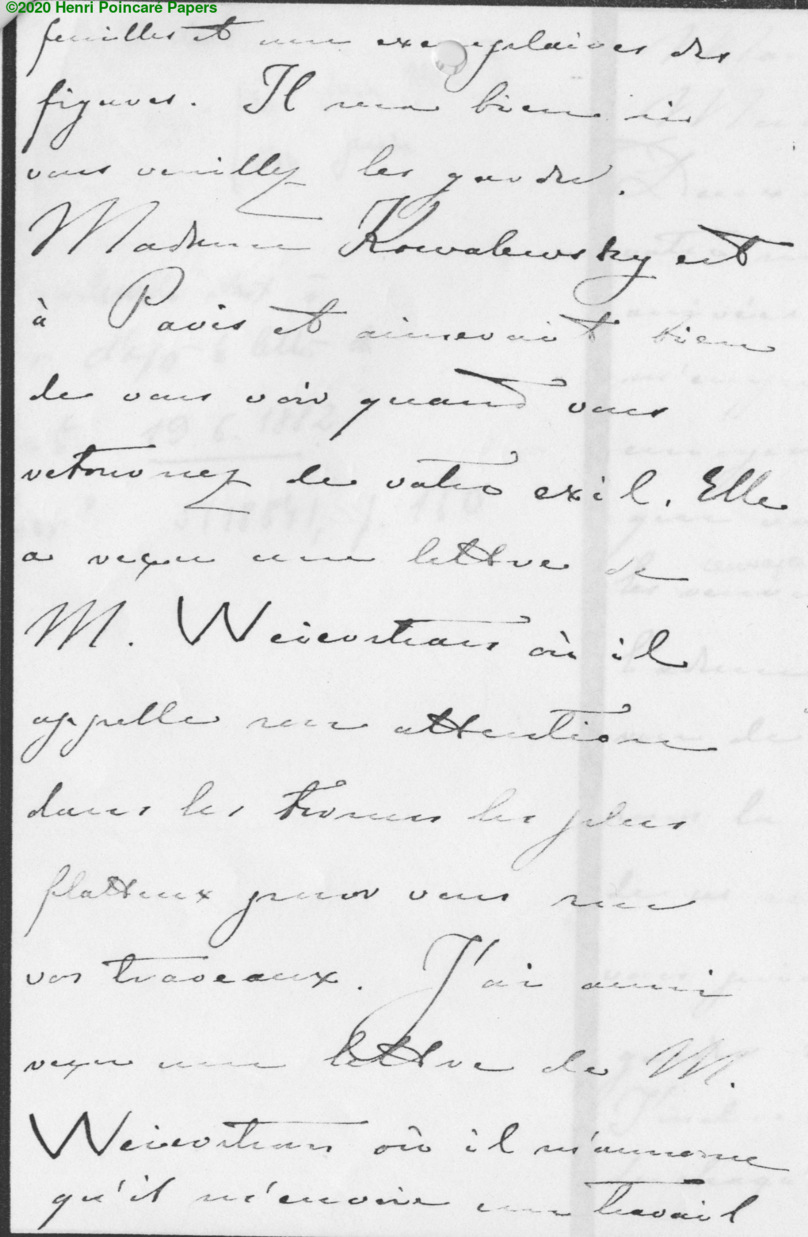 ©2020 Henri Poincaré Papers
feuilles et un exemplaires des
figures. Il sera bien si
vous veuillez les garder.
Madame Kowalewsky est
à Paris et aimerait bien
de vous voir quand vous
retournez de votre exil. Elle
a reçu une lettre de
M. Weierstrass où il
appelle son attention
dans les termes les plus
flatteux pour vous sur
vos traveaux. J'ai aussi
reçu une lettre de M.
Weierstrass où il m'annonce
qu'il m'envoie un travail